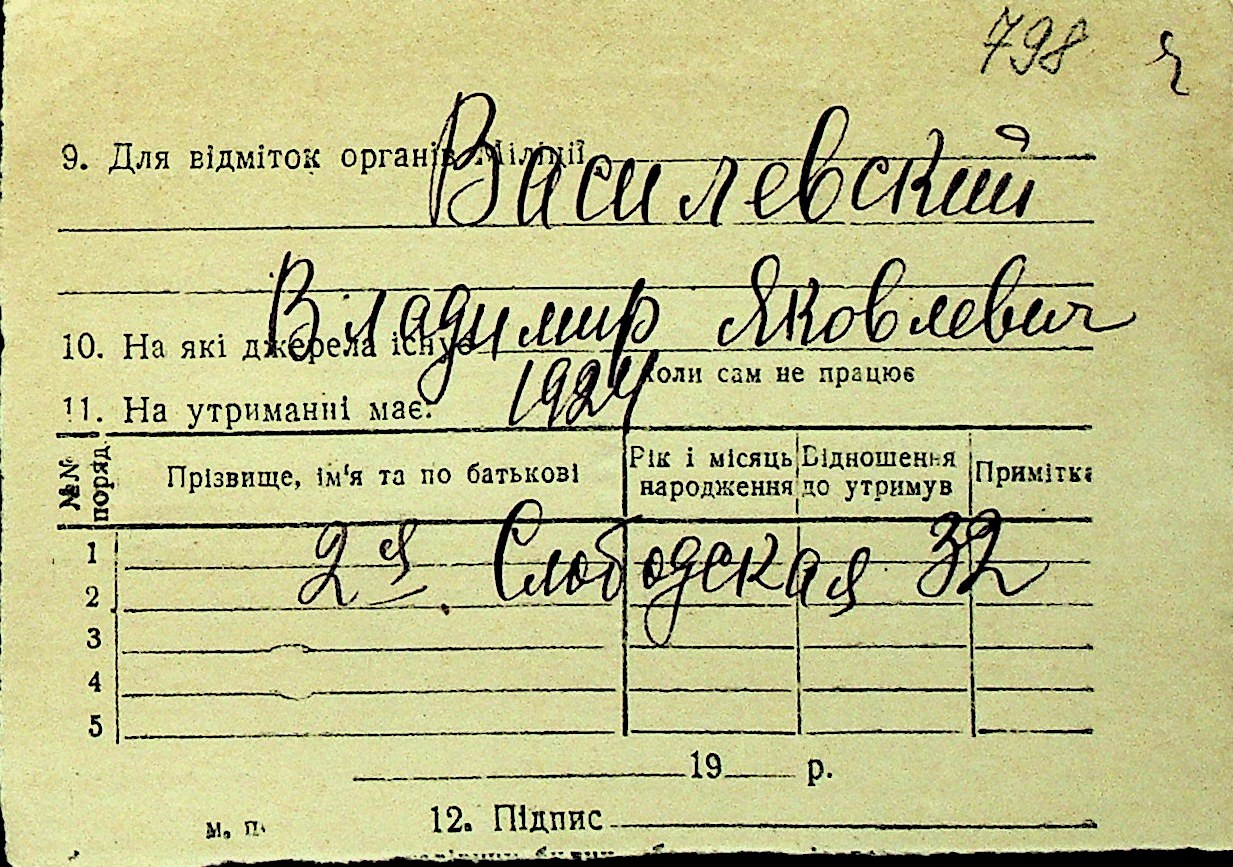 798 ч
9. Для відміток органів Міліції
Василевский
Владимир Яковлевич
10. На які джерела існує
коли сам не працює
1924
11. На утриманні має:
№№ поряд. Прізвище, ім'я та по батькові Рік і місяць народження Відношення до утримув Примітка
1
2я Слободская 32
2
3
4
5
19 р.
м. п. 12. Підпис